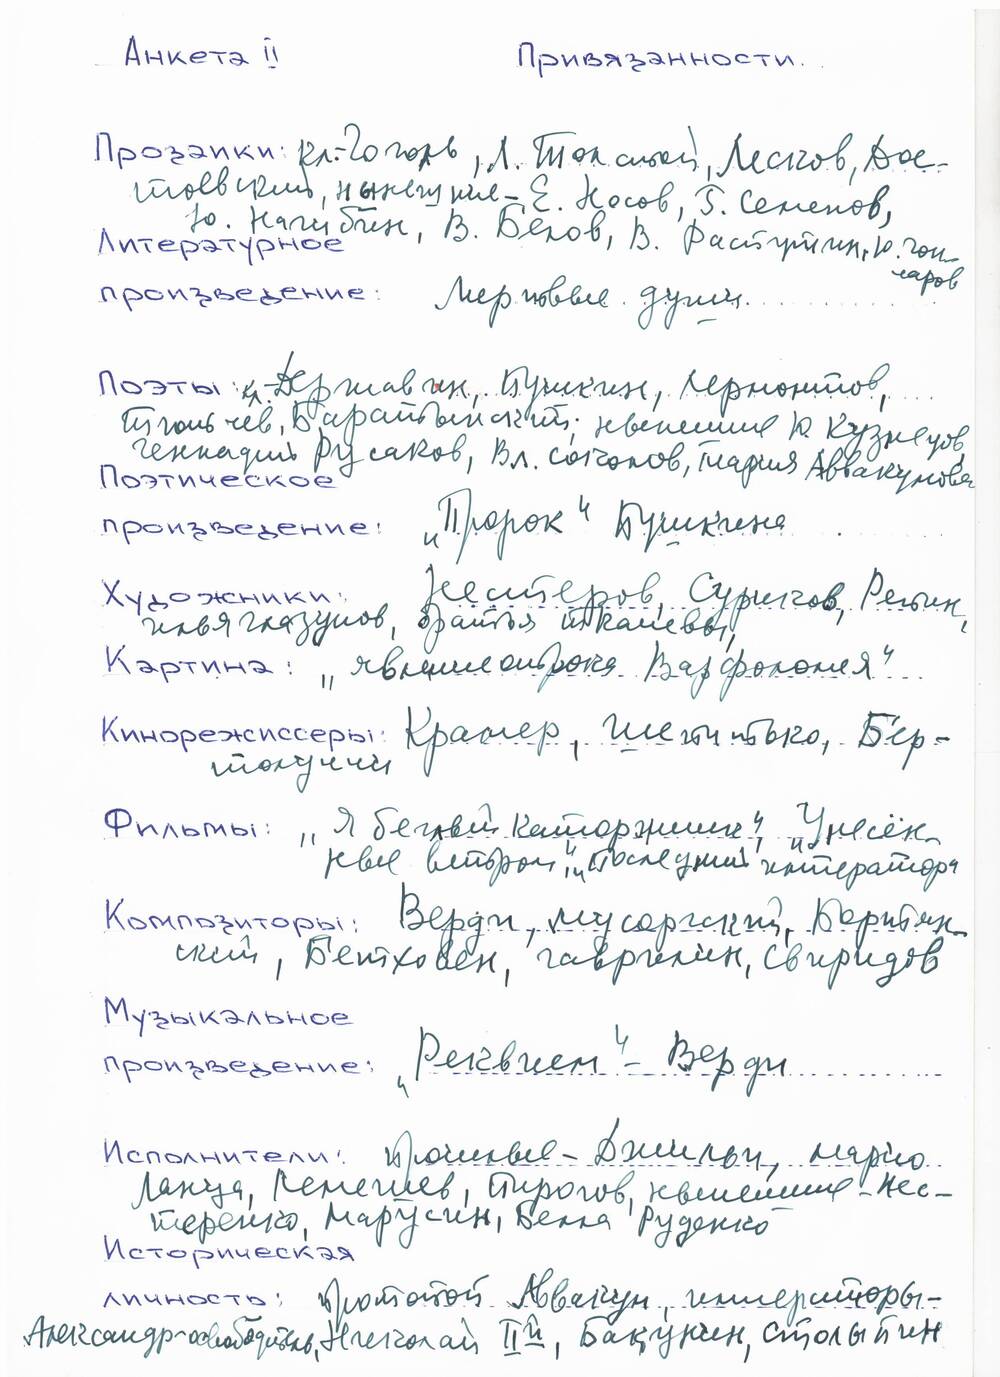 Анкета II Привязанности.
Прозаики: кл.-Гоголь, Л. Толстой, Лесков, Дос-
тоевский, нынешние - Е. Носов, Г. Семенов,
Ю. Нагибин, В. Белов, В. Распутин, Ю. Гон-
чаров
Литературное
произведение: Мертвые души
Поэты: кл.-Державин, Пушкин, Лермонтов,
Тютчев, Баратынский; нынешние Ю. Кузнецов,
Геннадий Русаков, Вл. Соколов, Мария Аввакумова
Поэтическое
произведение: „Пророк" Пушкина
Художники: Нестеров, Суриков, Репин,
Илья Глазунов, братья Ткачевы,
Картина: „Явление отрока Варфоломея"
Кинорежиссеры: Крамер, Шепитько, Бер-
толуччи
Фильмы: „Я беглый каторжник", „Унесён-
ные ветром", „Последний император
Композиторы: Верди, Мусоргский, Бортнян-
ский, Бетховен, Гаврилин, Свиридов
Музыкальное
произведение: „Реквием" - Верди
Исполнители: прошлые - Джильи, Марио
Ланца, Лемешев, Пирогов, нынешние - Нес-
теренко, Марусин, Белла Руденко
Историческая
личность: протопоп Аввакум, императоры-
Александр-освободитель, Николай IIй, Бакунин, Столыпин